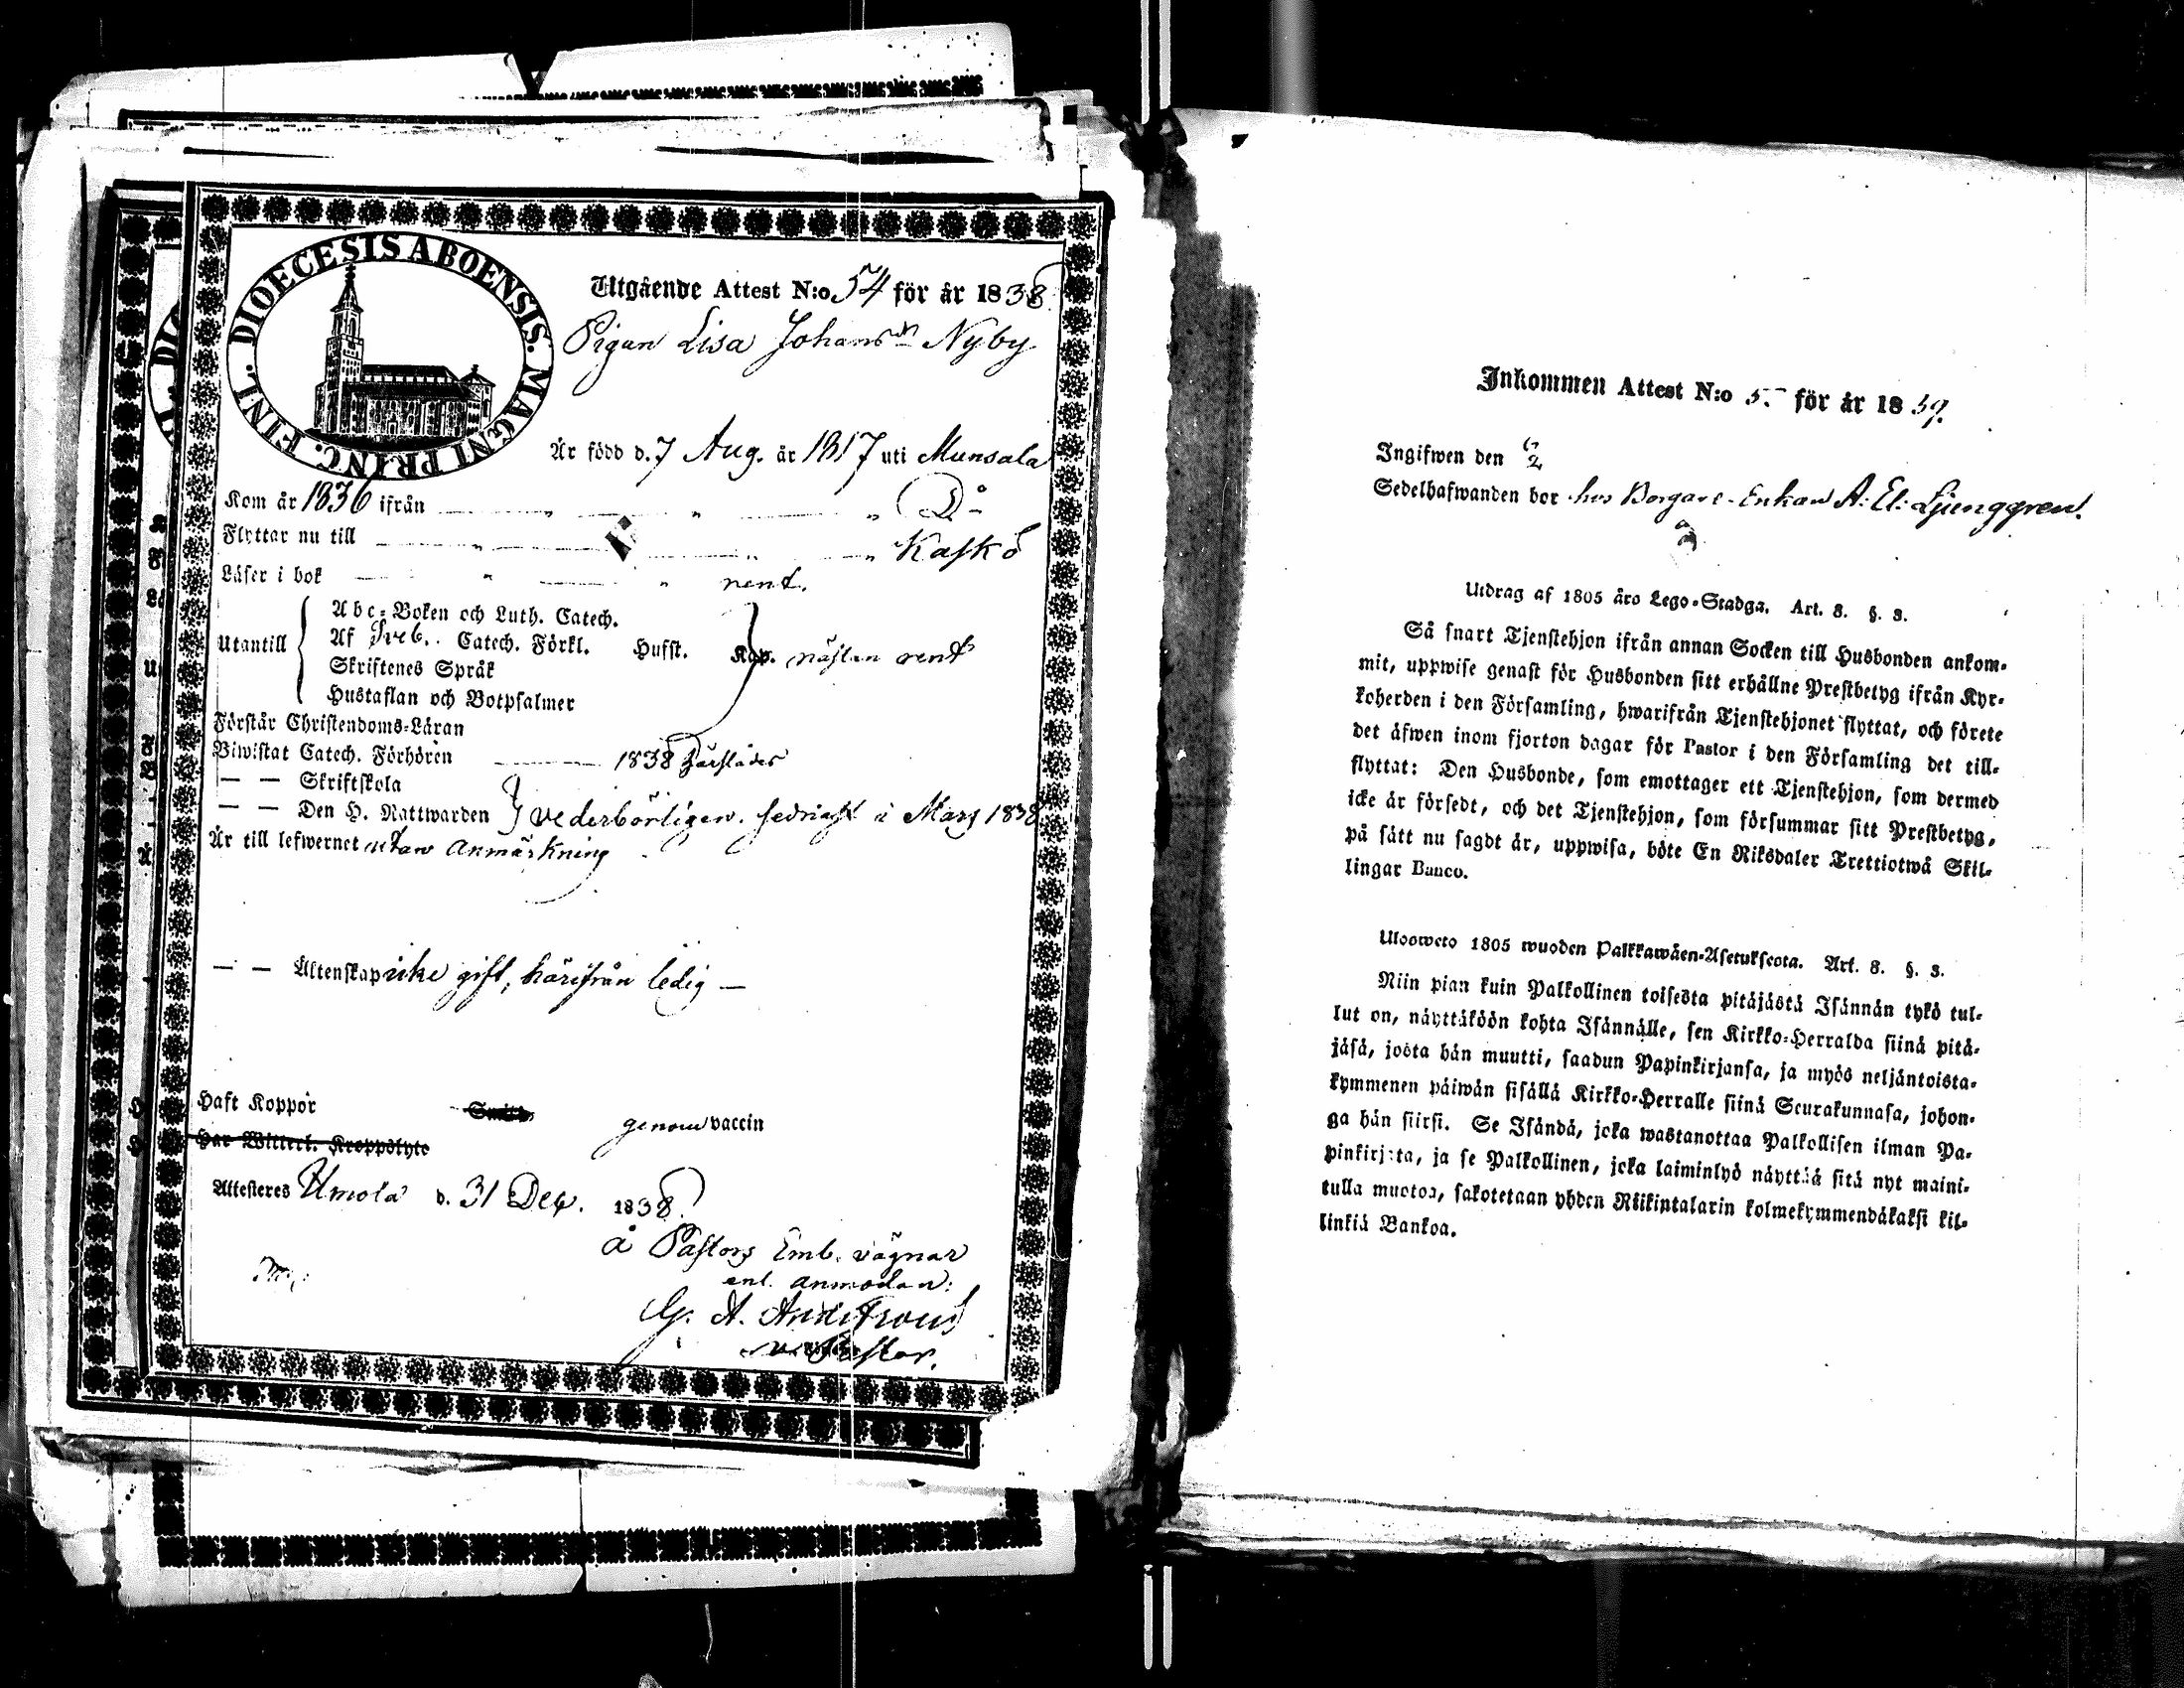 DIOECESIS ABOENSIS. MAGNI PRINC. FINL.
Utgående Attest N:o 54 för år 1838
Pigan Lisa Johansdr Nyby
Är född d. 7 Aug. år 1817 uti Munsala
Kom år 1836 ifrån Do
Flyttar nu till Kaskö
Läser i bok rent.
Utantill
Abc-Boken och Luth. Catech.
Af Sveb. Catech. Förkl. Hufst. Kap. nästan rent
Skriftenes Språk
Hustaflan och Botpsalmer
Förstår Christendoms-Läran
Biwistat Catech. Förhören 1838 härstädes
— — Skriftskola
— — Den H. Nattwarden vederbörligen. sednast i Mars 1838
Är till lefwernet utan anmärkning
— — Äktenskap icke gift, härifrån ledig —
Haft Koppor genom vaccin
Har Witterl. Kroppslyte
Attesteres Umola d. 31 Dec. 1838.
å Pastors Emb. vägnar
enl. anmodan:
G. A.
v. Pastor.
Inkommen Attest N:o för år 1839.
Ingifwen den 6/2
Sedelhafwanden bor hos Borgare-Enkan A: El: Ljunggren.
Utdrag af 1805 års Lego-Stadga. Art. 8. §. 3.
Så snart Tjenstehjon ifrån annan Socken till Husbonden ankom-
mit, uppwise genast för Husbonden sitt erhållne Prestbetyg ifrån Kyr-
koherden i den Församling, hwarifrån Tjenstehjonet flyttat, och förete
det äfwen inom fjorton dagar för Pastor i den Församling det till-
flyttat: Den Husbonde, som emottager ett Tjenstehjon, som dermed
icke är försedt, och det Tjenstehjon, som försummar sitt Prestbetyg,
på sätt nu sagdt är, uppwisa, böte En Riksdaler Trettiotwå Skil-
lingar Banco.
Ulosweto 1805 wuoden Palkkawäen-Asetuksesta. Art. 8. §. 3.
Niin pian kuin Palkollinen toisesta pitäjästä Isännän tykö tul-
lut on, näyttäköön kohta Isännälle, sen Kirkko-Herralda siinä pitä-
jäsä, josta hän muutti, saadun Papinkirjansa, ja myös neljäntoista-
kymmenen päiwän sisällä Kirkko-Herralle siinä Seurakunnasa, johon-
ga hän siirsi. Se Isändä, joka wastanottaa Palkollisen ilman Pa-
pinkirjata, ja se Palkollinen, joka laiminlyö näyttää sitä nyt maini-
tulla muotoa, sakotetaan yhden Riikintalarin kolmekymmendäkaksi kil-
linkiä Bankoa.